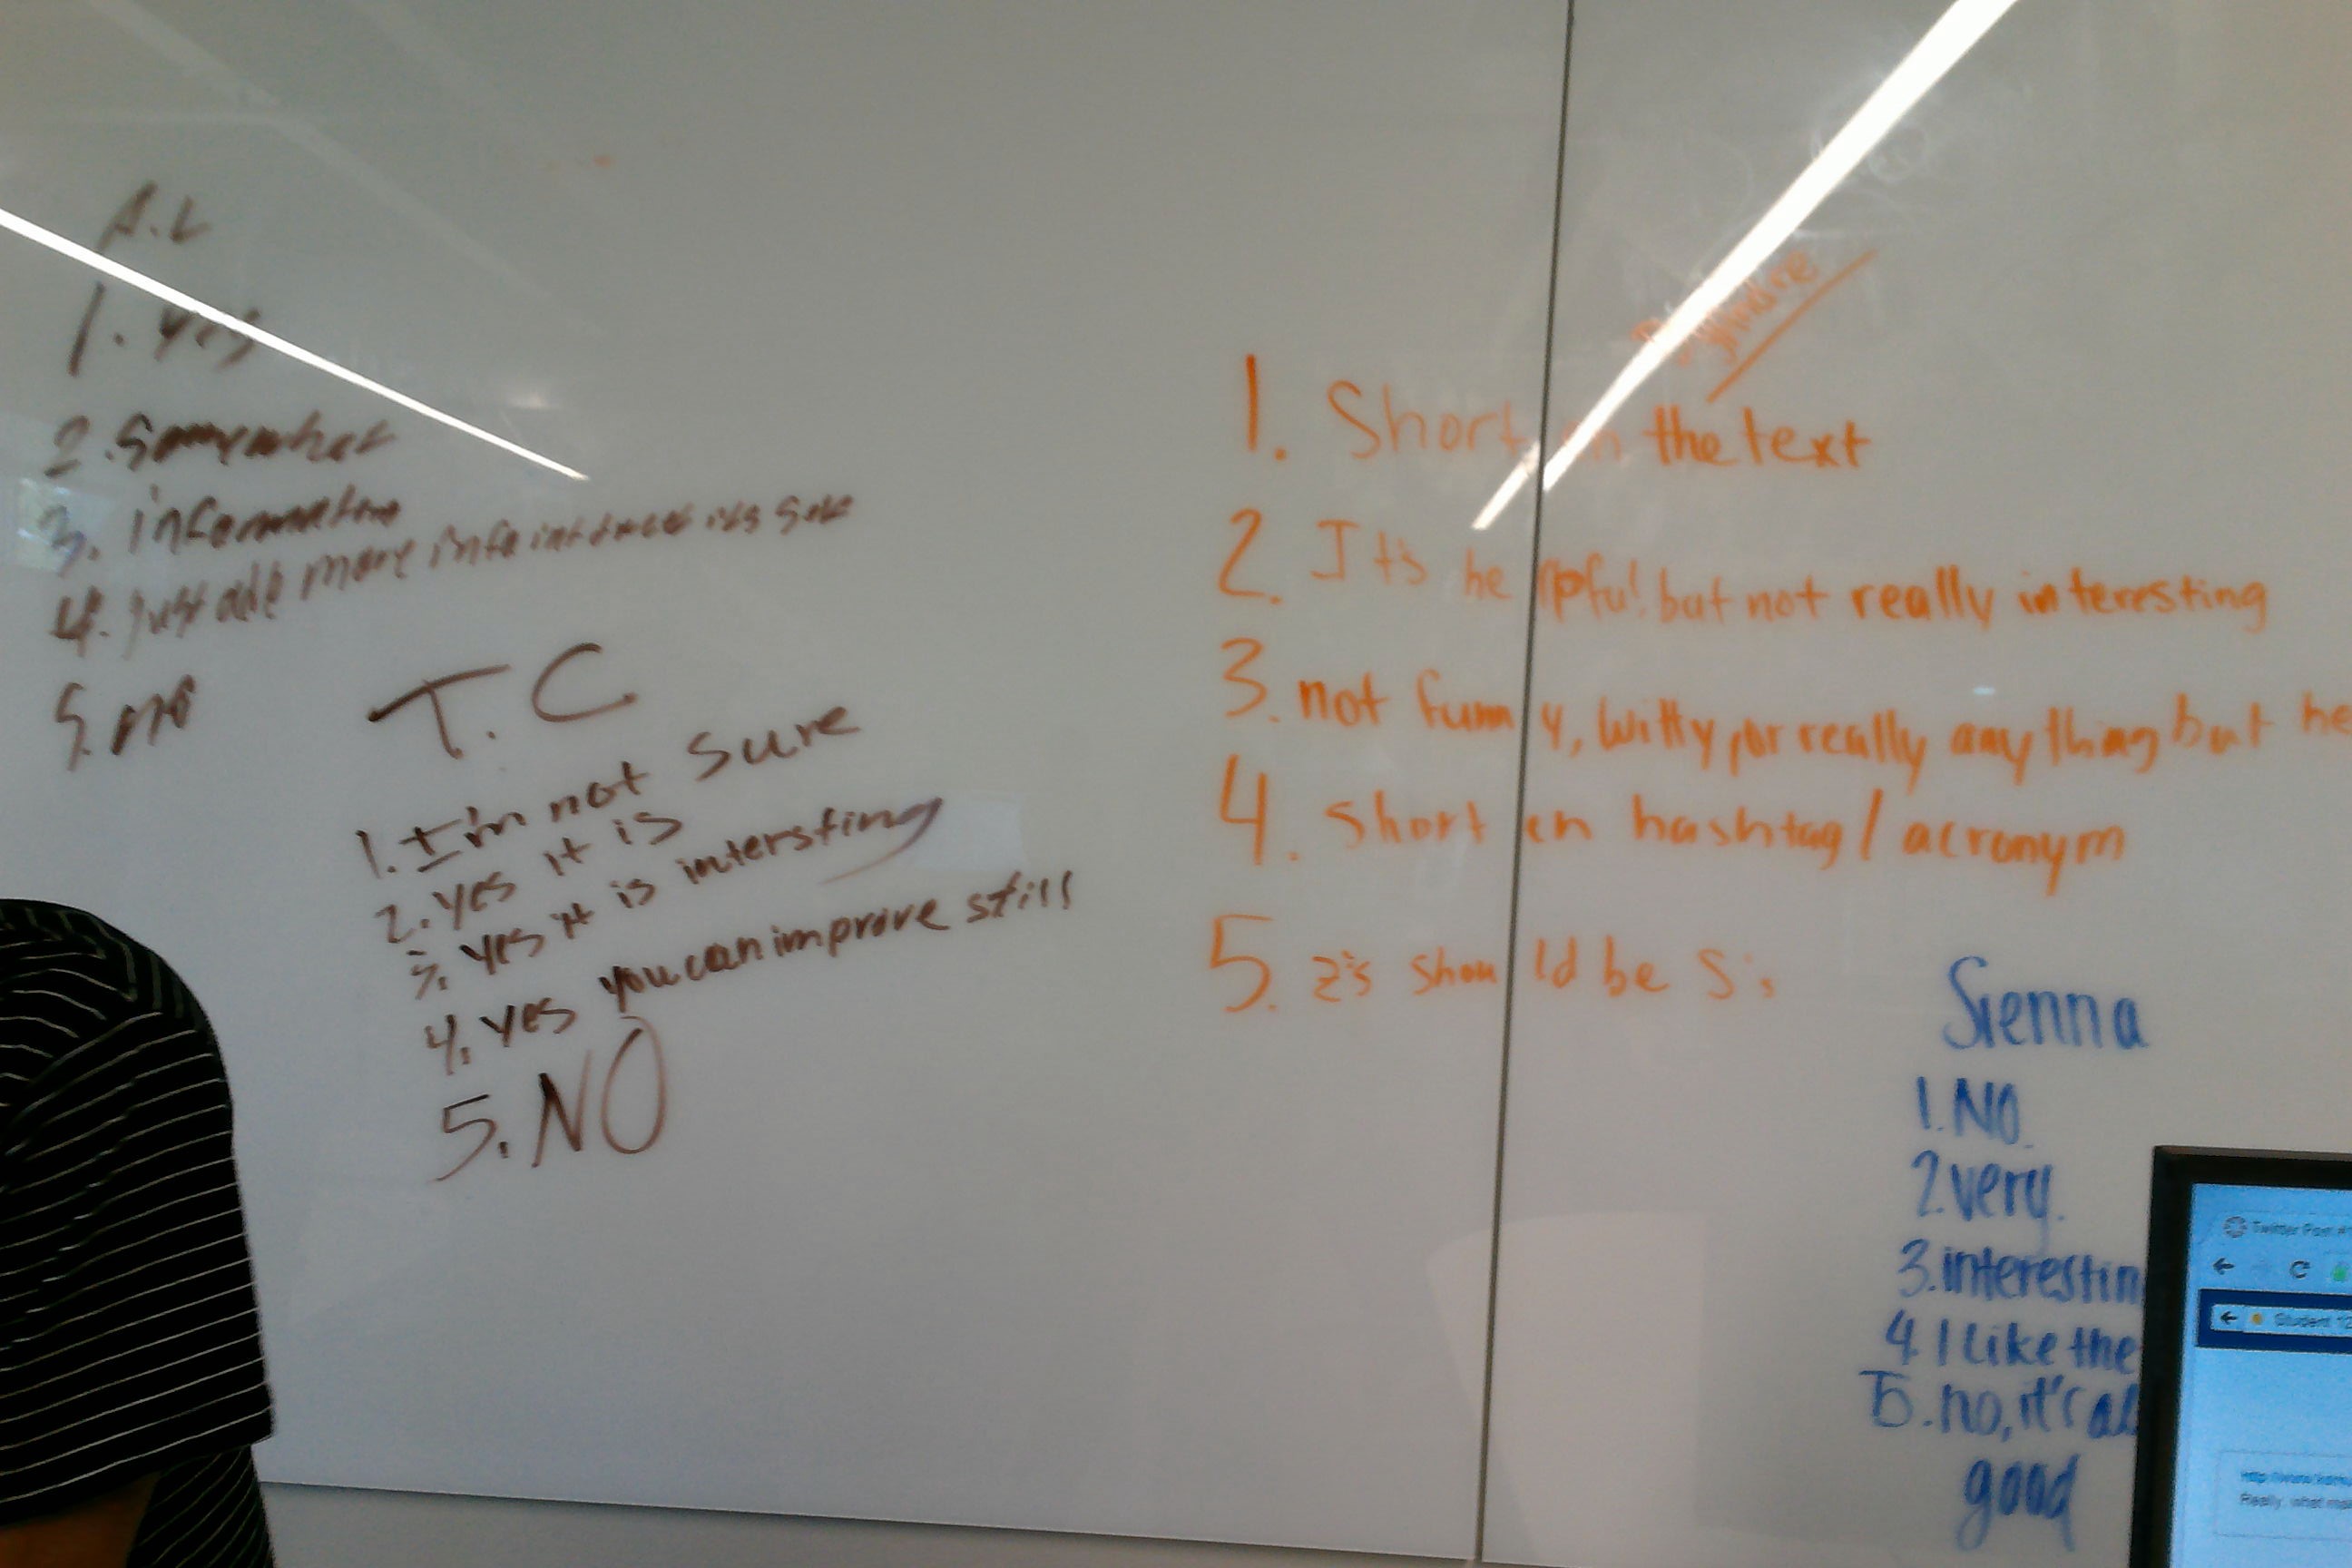 A.L
1. Yes
2. Somewhat
3. information
4. Just add more info
5. no
T.C
1. I'm not sure
2. yes it is
3. yes it is intersting
4. yes you can improve still
5. NO
1. Short en the text
2. It's helpful but not really interesting
3. not funny, witty, or really anything but he
4. Short en hashtag / acronym
5. z's should be s's
Sienna
1. NO.
2. very.
3. interestin
4. I like the
5. no, it's al
good
Twitter Post #
Student 12
Really, what ma